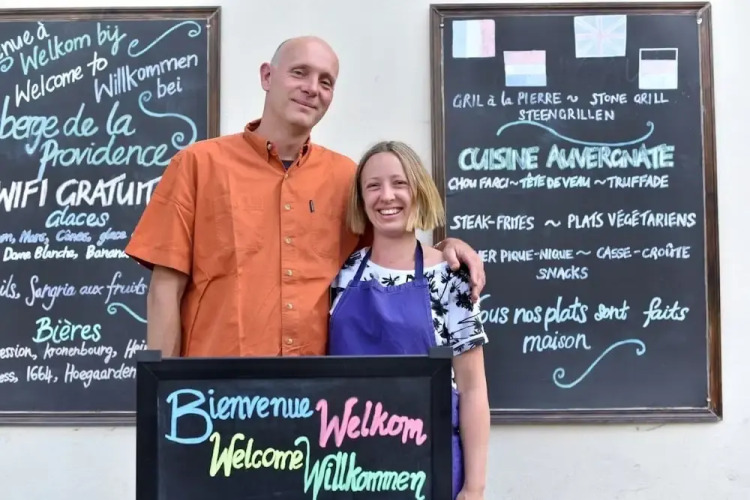 Welkom bij
Welcome to
Willkommen
bei
berge de la
Providence
WIFI GRATUIT
Glaces
Dame Blanche,
Sangria aux fruits
Bières
Kronenbourg,
1664, Hoegaarden
GRIL à la PIERRE ~ STONE GRILL
STEENGRILLEN
CUISINE AUVERGNATE
CHOU FARCI ~ TÊTE DE VEAU ~ TRUFFADE
STEAK-FRITES ~ PLATS VÉGÉTARIENS
PIQUE-NIQUE ~ CASSE-CROÛTE
SNACKS
nos plats sont faits
maison
Bienvenue Welkom
Welcome Willkommen